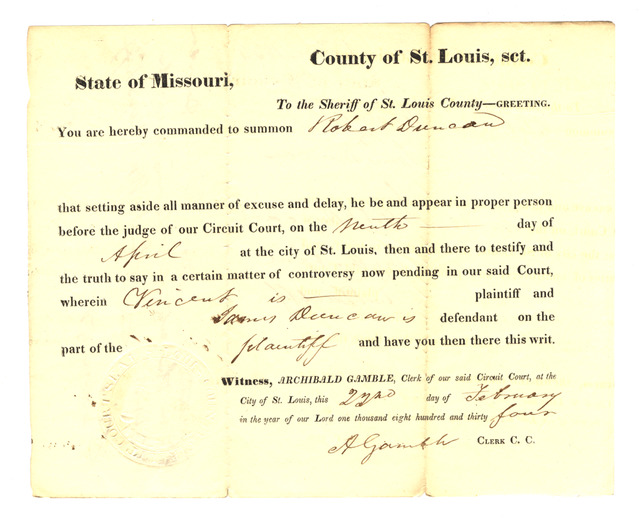 County of St. Louis, sct.
State of Missouri,
To the Sheriff of St. Louis County—GREETING.
You are hereby commanded to summon Robert Duncan
that setting aside all manner of excuse and delay, he be and appear in proper person
before the judge of our Circuit Court, on the Ninth day of
April at the city of St. Louis, then and there to testify and
the truth to say in a certain matter of controversy now pending in our said Court,
wherein Vincent is plaintiff and
James Duncan is defendant on the
part of the plaintiff and have you then there this writ.
Witness, ARCHIBALD GAMBLE, Clerk of our said Circuit Court, at the
City of St. Louis, this 22nd day of February
in the year of our Lord one thousand eight hundred and thirty four
A Gamble CLERK C. C.